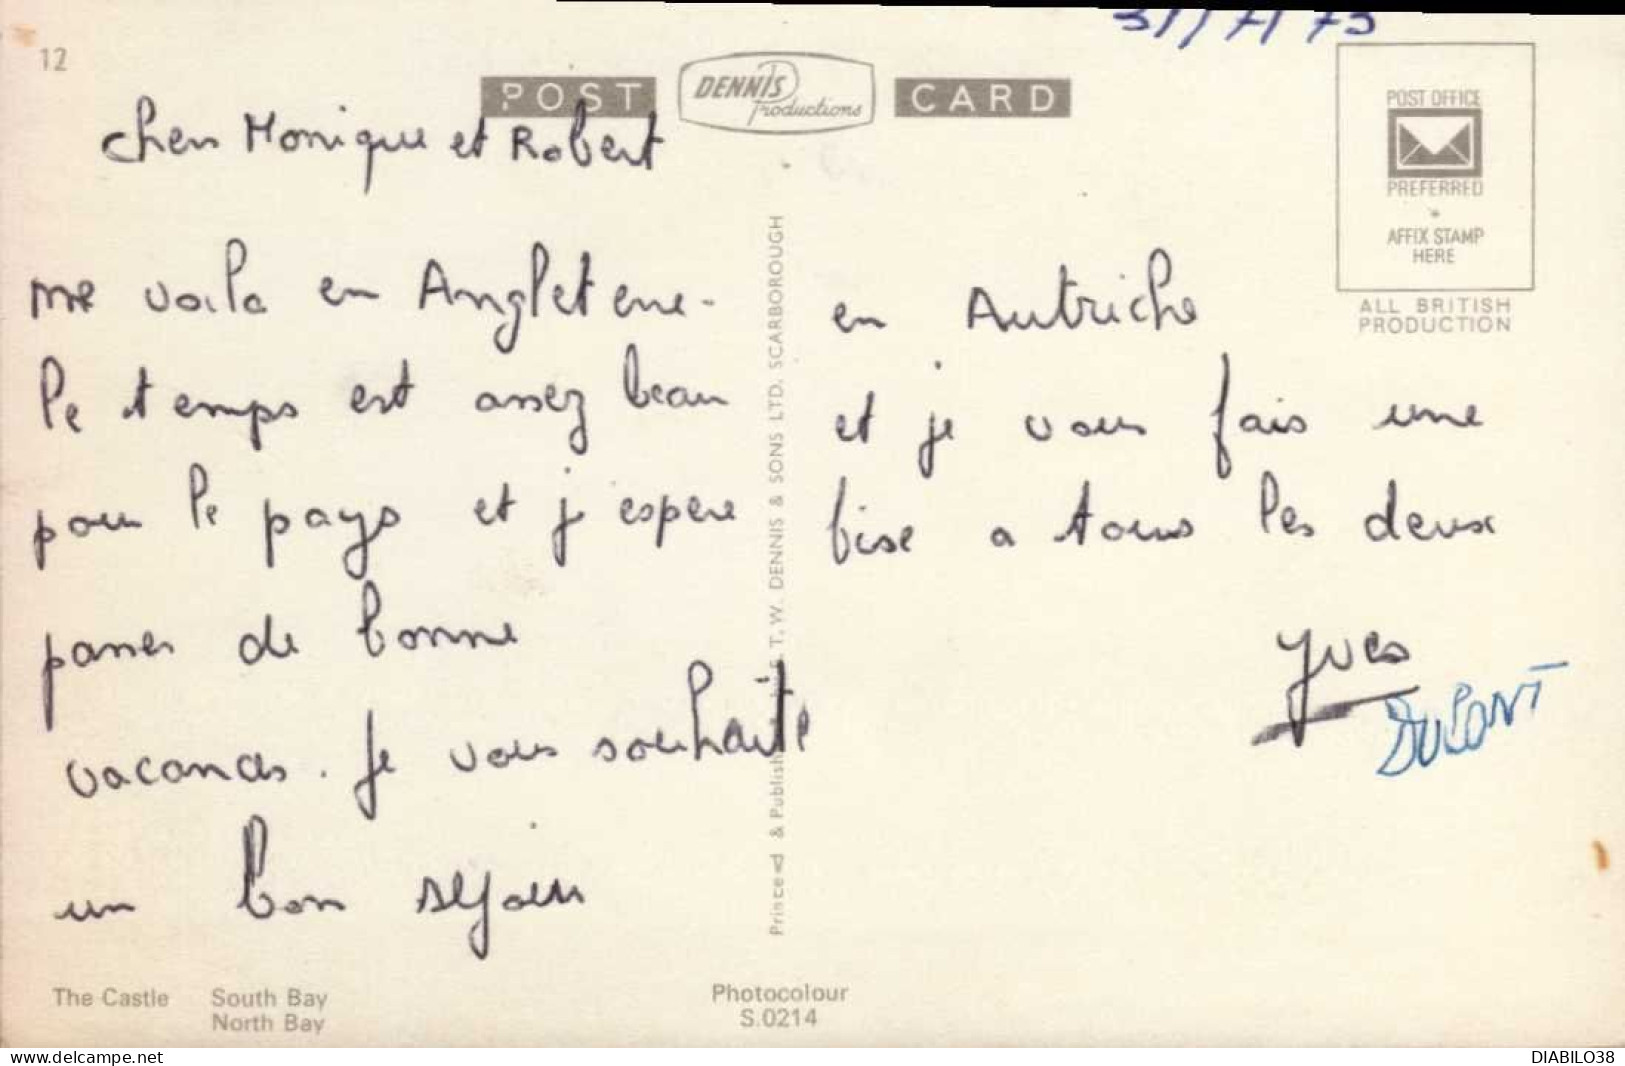 12
POST
DENNIS
Productions
CARD
POST OFFICE
PREFERRED
AFFIX STAMP
HERE
ALL BRITISH
PRODUCTION
chers Monique et Robert
me voila en Angleterre.
Le temps est assez beau
pour le pays et j espere
passer de bonne
vacances. Je vous souhaite
un bon sejour
en Autriche
et je vous fais une
bise a tous les deux
Yves
DUPONT
Printed & Published by E. T. W. DENNIS & SONS LTD. SCARBOROUGH
The Castle South Bay
North Bay
Photocolour
S.0214
www.delcampe.net
DIABILO38